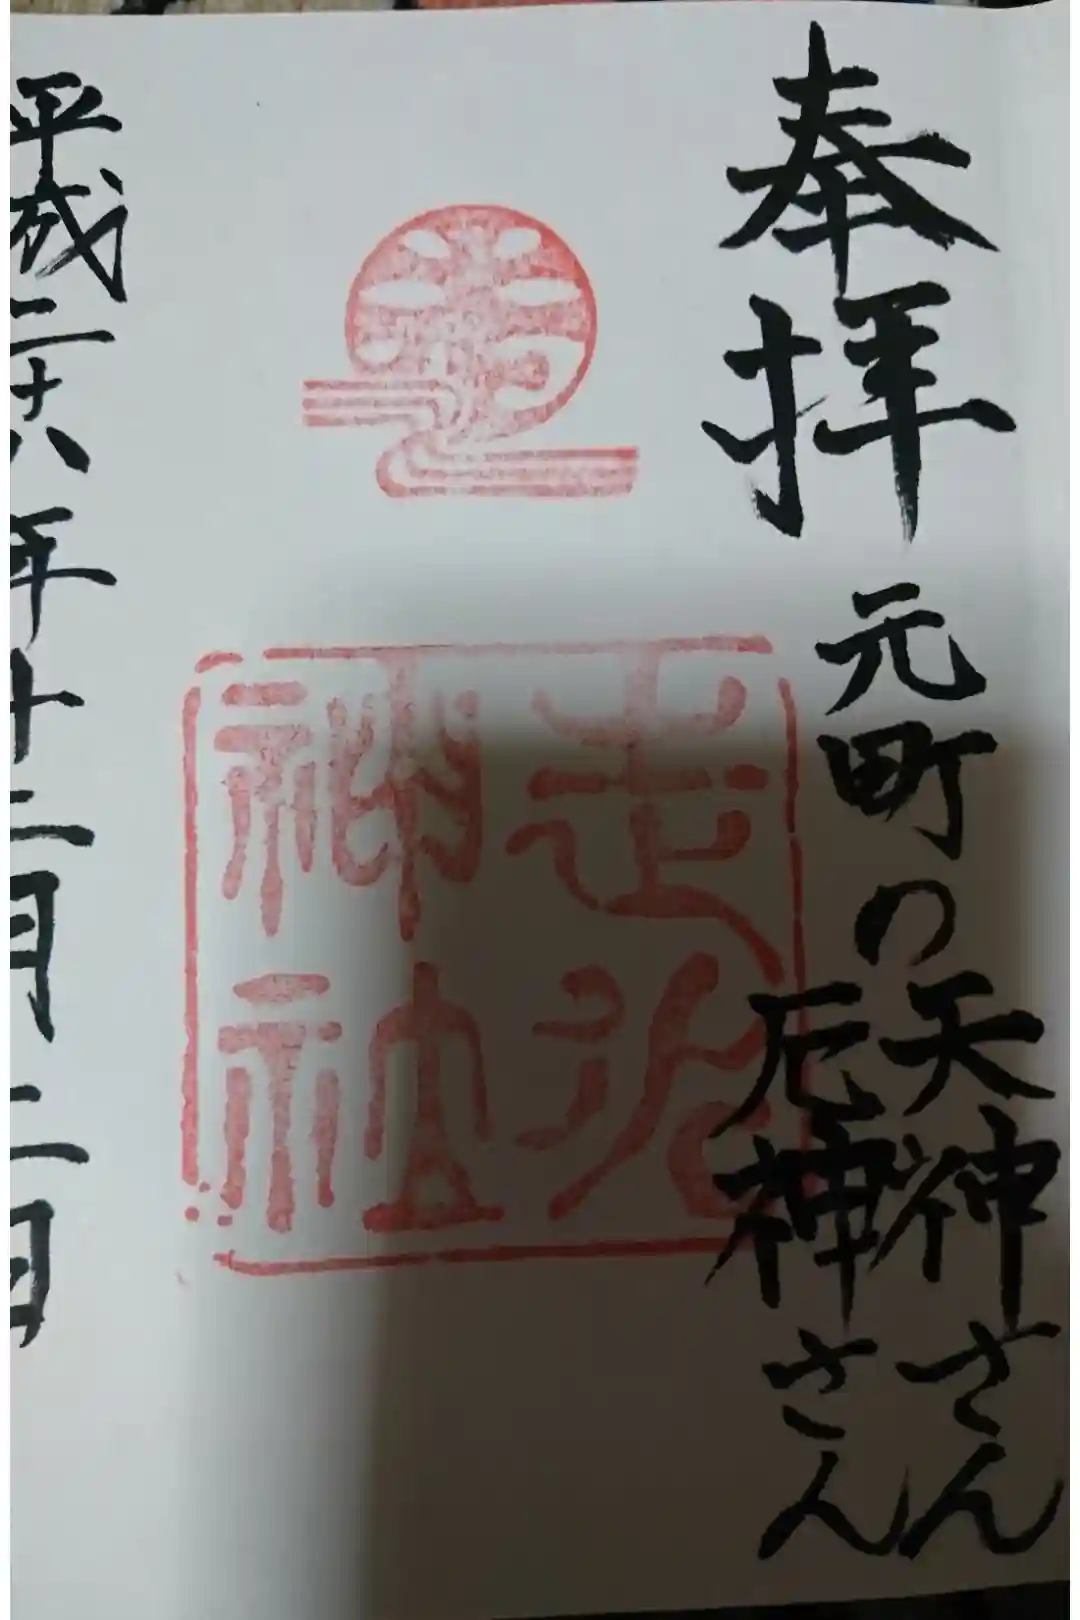 奉拝
元町の天神さん
厄神さん
走水
神社
平成二十八年十二月二日